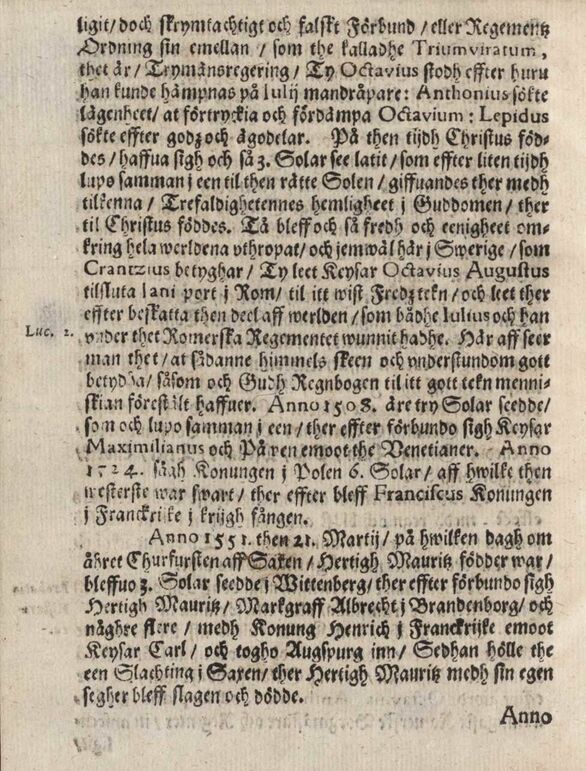 ligit/ doch skrymtachtigt och falskt Förbund / eller Regementz
Ordning sin emellan / som the kalladhe Triumviratum,
thet är / Trymänsregering / Ty Octavius stodh effter huru
han kunde hämpnas på Iulij mandråpare: Anthonius sökte
lägenheet / at förtryckia och fördämpa Octavium: Lepidus
sökte effter godz och ägodelar. På then tijdh Christus föd-
des / haffua sigh och så 3. Solar see latit / som effter liten tijdh
lupo samman j een til then rätte Solen / giffuandes ther medh
tilkenna / Trefaldighetennes hemligheet j Guddomen / ther
til Christus föddes. Tå bleff och så fredh och eenigheet om-
kring hela werldena vthropat / och jemwäl här j Swerige / som
Crantzius betyghar / Ty leet Keysar Octavius Augustus
tilsluta Iani port j Rom / til itt wist Fredztekn / och leet ther
effter beskatta then deel aff werlden / som bådhe Iulius och han
Luc. 2.
vnder thet Romerska Regementet wunnit hadhe. Här aff seer
man thet / at sådanne himmels skeen och vnderstundom gott
betydha / såsom och Gudh Regnbogen til itt gott tekn menni-
skian förestält haffuer. Anno 1508. äre try Solar seedde /
som och lupo samman j een / ther effter förbundo sigh Keysar
Maximilianus och Påven emoot the Venetianer. Anno
1524. sågh Konungen j Polen 6. Solar / aff hwilke then
westerste war swart / ther effter bleff Franciscus Konungen
j Franckrijke j krijgh fången.
Anno 1551. then 21. Martij / på hwilken dagh om
åhret Churfursten aff Saxen / Hertigh Mauritz födder war /
bleffuo 3. Solar seedde j Wittenberg / ther effter förbundo sigh
Hertigh Mauritz / Markgraff Albrecht j Brandenborg / och
någhre flere / medh Konung Henrich j Franckrijke emoot
Keysar Carl / och togho Augspurg inn / Sedhan hölle the
een Slachting j Saxen / ther Hertigh Mauritz medh sin egen
segher bleff slagen och dödde.
Anno